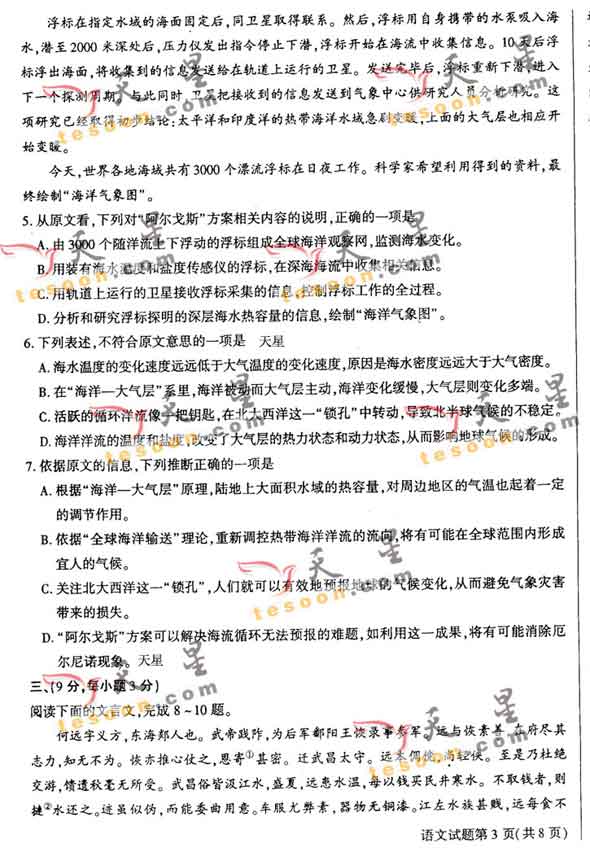 浮标在指定水域的海面固定后,同卫星取得联系。然后,浮标用自身携带的水泵吸入海
水,潜至2000米深处后,压力仪发出指令停止下潜,浮标开始在海流中收集信息。10天后浮
标浮出海面,将收集到的信息发送给在轨道上运行的卫星。发送完毕后,浮标重新下潜,进入
下一个探测周期。与此同时,卫星把接收到的信息发送到气象中心供研究人员分析研究。这
项研究已经取得初步结论:太平洋和印度洋的热带海洋水域急剧变暖,上面的大气层也相应开
始变暖。
今天,世界各地海域共有3000个漂流浮标在日夜工作。科学家希望利用得到的资料,最
终绘制“海洋气象图”。
5.从原文看,下列对“阿尔戈斯”方案相关内容的说明,正确的一项是
A.由3000个随洋流上下浮动的浮标组成全球海洋观察网,监测海水变化。
B.用装有海水温度和盐度传感仪的浮标,在深海海流中收集相关信息。
C.用轨道上运行的卫星接收浮标采集的信息,控制浮标工作的全过程。
D.分析和研究浮标探明的深层海水热容量的信息,绘制“海洋气象图”。
6.下列表述,不符合原文意思的一项是 天星
A.海水温度的变化速度远远低于大气温度的变化速度,原因是海水密度远远大于大气密度。
B.在“海洋—大气层”系里,海洋被动而大气层主动,海洋变化缓慢,大气层则变化多端。
C.活跃的循环洋流像一把钥匙,在北大西洋这一“锁孔”中转动,导致北半球气候的不稳定。
D.海洋洋流的温度和盐度,改变了大气层的热力状态和动力状态,从而影响地球气候的形成。
7.依据原文的信息,下列推断正确的一项是
A.根据“海洋—大气层”原理,陆地上大面积水域的热容量,对周边地区的气温也起着一定
的调节作用。
B.依据“全球海洋输送”理论,重新调控热带海洋洋流的流向,将有可能在全球范围内形成
宜人的气候。
C.关注北大西洋这一“锁孔”,人们就可以有效地预报地球的气候变化,从而避免气象灾害
带来的损失。
D.“阿尔戈斯”方案可以解决海流循环无法预报的难题,如利用这一成果,将有可能消除厄
尔尼诺现象。天星
三、(9分,每小题3分)
阅读下面的文言文,完成8~10题。
何远字义方,东海郯人也。武帝践阼,为后军鄱阳王恢录事参军。远与恢素善,在府尽其
志力,知无不为。恢亦推心仗之,恩寄①甚密。迁武昌太守。远本倜傥,尚轻侠。至是乃杜绝
交游,馈遗秋毫无所受。武昌俗皆汲江水,盛夏,远患水温,每以钱买民井寒水。不取钱者,则
揵②水还之。迹虽似伪,而能委曲用意。车服尤弊素,器物无铜漆。江左水族甚贱,远每食不
语文试题第3页(共8页)
天星
tesoon.com
天星
tesoon.com
天星
tesoon.com
天星
tesoon.com
天星
tesoon.com
天星
tesoon.com
天星
tesoon.com
天星
tesoon.com